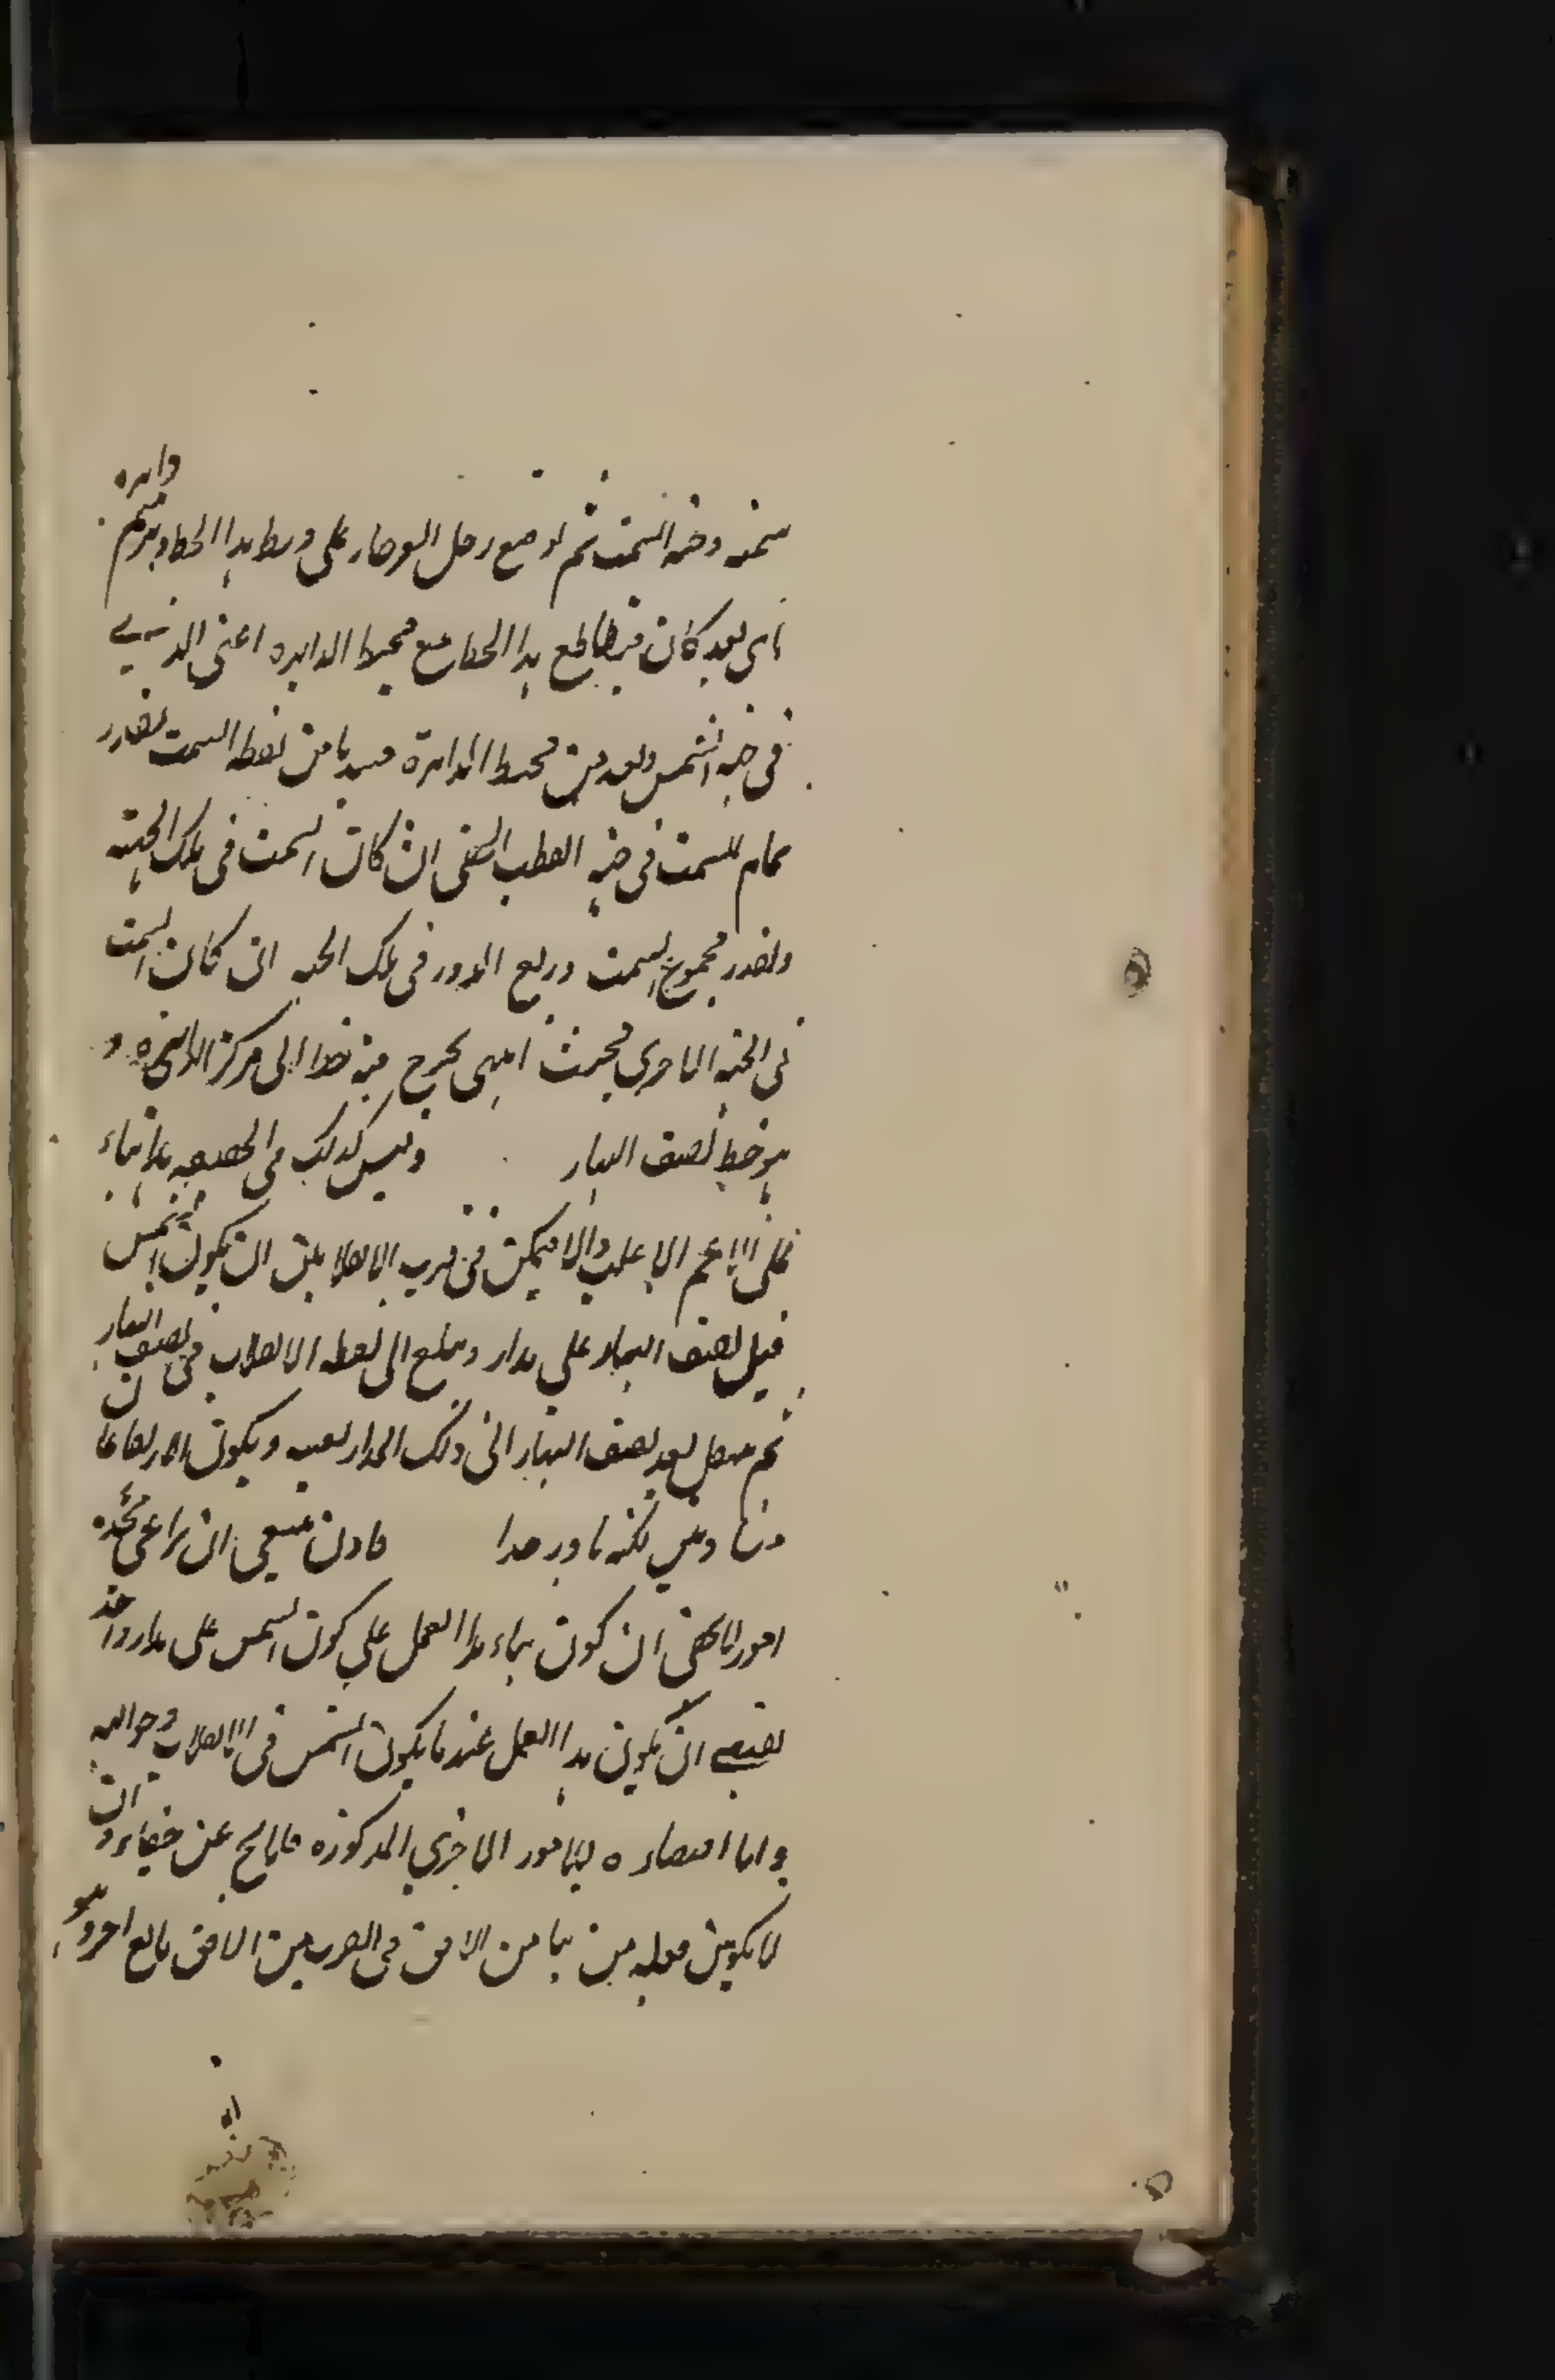 سمته وجهة السمت ثم يوضع رجل الفرجار على وسط هذا الخط ويرسم دايره
باى بعد كان فيقاطع هذا الخط مع محيط الدايره اعنى الذى
فى جهة الشمس وبعد من محيط الدايرة مبتدئا من نقطه السمت بقدر
تمام السمت فى جهة القطب الخفى ان كان السمت فى تلك الجهة
وبقدر مجموع السمت وربع الدور فى تلك الجهه ان كان السمت
فى الجهة الاخرى فحيث انتهى يخرج منه خط الى مركز الدايره و
هو خط نصف النهار وليس كذلك فى الحقيقه بل بناء
على الاعم الاغلب والا فيمكن فى قرب الانقلابين ان يكون الشمس
قبل نصف النهار على مدار وتبلغ الى نقطه الانقلاب فى نصف النهار
ثم ينتقل بعد نصف النهار الى ذلك المدار بعينه ويكون الارتفاعان
لكنه نادر جدا فاذن ينبغى ان يراعى عدة
امور لا يخفى ان كون بناء هذا العمل على كون الشمس على مدار واحد
يقتضى ان يكون هذا العمل عند ما يكون الشمس فى الانقلاب وحواليه
واما اقتضاءه للامور الاخرى المذكوره فلا يخ عن خفاء وان
لا يكون قوله من الافق فى القرب من الافق مانع اخر وهو